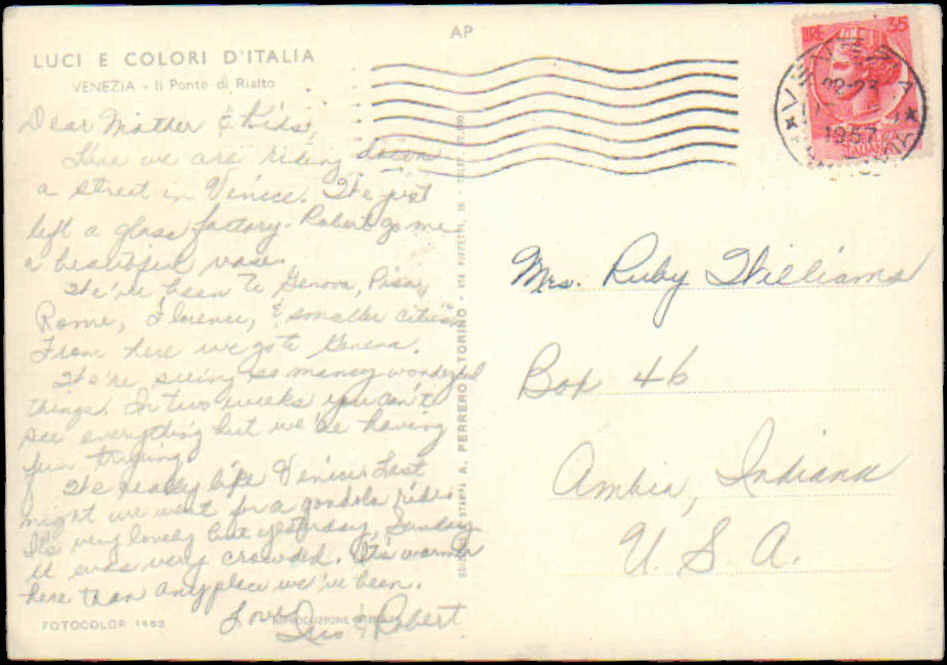 AP
LUCI E COLORI D'ITALIA
VENEZIA - Il Ponte di Rialto
Dear Mother & Kids,
Here we are riding down
a street in Venice. We just
left a glass factory. Robert go me
a beautiful vase.
We've been to Genova, Pisa,
Rome, Florence, & smaller cities
From here we go to Geneva.
We're seeing so many wonderful
things. In two weeks you can't
see everything but we're having
fun trying.
We really like Venice. Last
night we went for a gondola ride.
It's very lovely but yesterday, Sunday
it was very crowded. It's warmer
here than anyplace we've been.
Love
& Robert
FOTOCOLOR
STAMPA A. FERRERO TORINO
LIRE 35
VENEZIA
1957
ITALIANA
Mrs. Ruby Williams
Box 46
Ambia, Indiana
U. S. A.